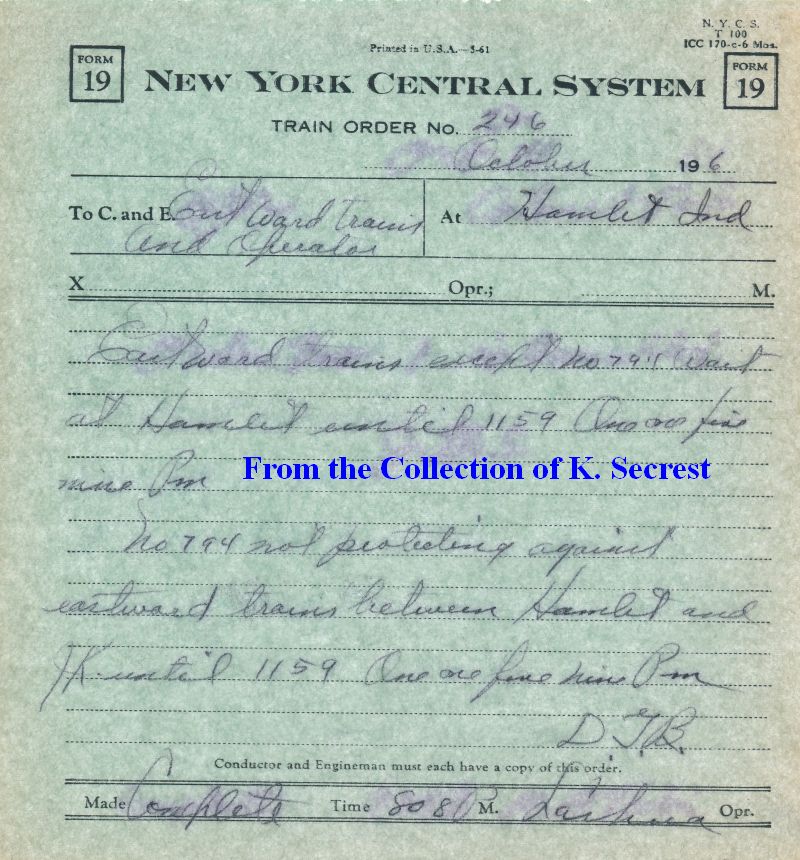 N. Y. C. S.
T 100
ICC 170-c-6 Mos.
Printed in U.S.A.—5-61
FORM 19
NEW YORK CENTRAL SYSTEM
FORM 19
TRAIN ORDER NO. 246
October 196
To C. and E. Eastward trains
and Operator
At Hamlet Ind
X Opr.; M.
Eastward trains except No 794 wait
at Hamlet until 1159 One one five
nine Pm
From the Collection of K. Secrest
No 794 not protecting against
eastward trains between Hamlet and
until 1159 One one five nine Pm
Conductor and Engineman must each have a copy of this order.
Made Complete Time 808 M. Opr.